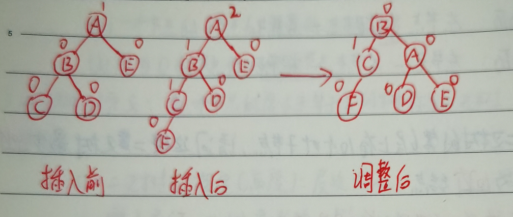 1 A 2 A 0 B
0 B 0 E 1 B 0 E 1 C 0 A
0 C 0 D 1 C 0 D 0 F 0 D 0 E
0 F
插入前 插入后 调整后